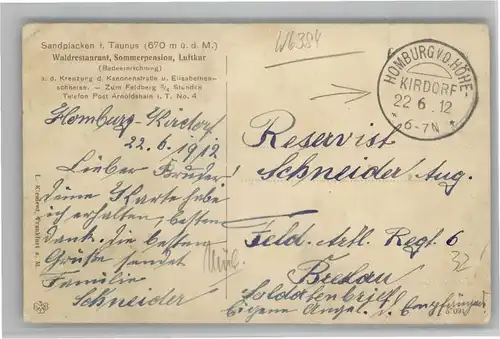 Sandplacken i. Taunus (670 m ü. d. M.)
Waldrestaurant, Sommerpension, Luftkur
(Badeeinrichtung)
a. d. Kreuzung d. Kanonenstraße u. Elisabethen-
schneise. — Zum Feldberg ¾ Stunden
Telefon Post Arnoldshain i. T. No. 4
W6384
HOMBURG V.D. HÖHE-
KIRDORF
22 6. 12
* 6-7N *
Homburg-Kirdorf.
22.6.1912
Lieber Bruder!
deine Karte habe
ich erhalten, besten
dank. die besten
Grüße sendet
Familie
Schneider
Reservist
Schneider Aug.
Feld. Artl. Regt. 6
32!
Breslau
Soldatenbrief!
Eigene Angel. d. Empfängers
Frankfurt a. M.